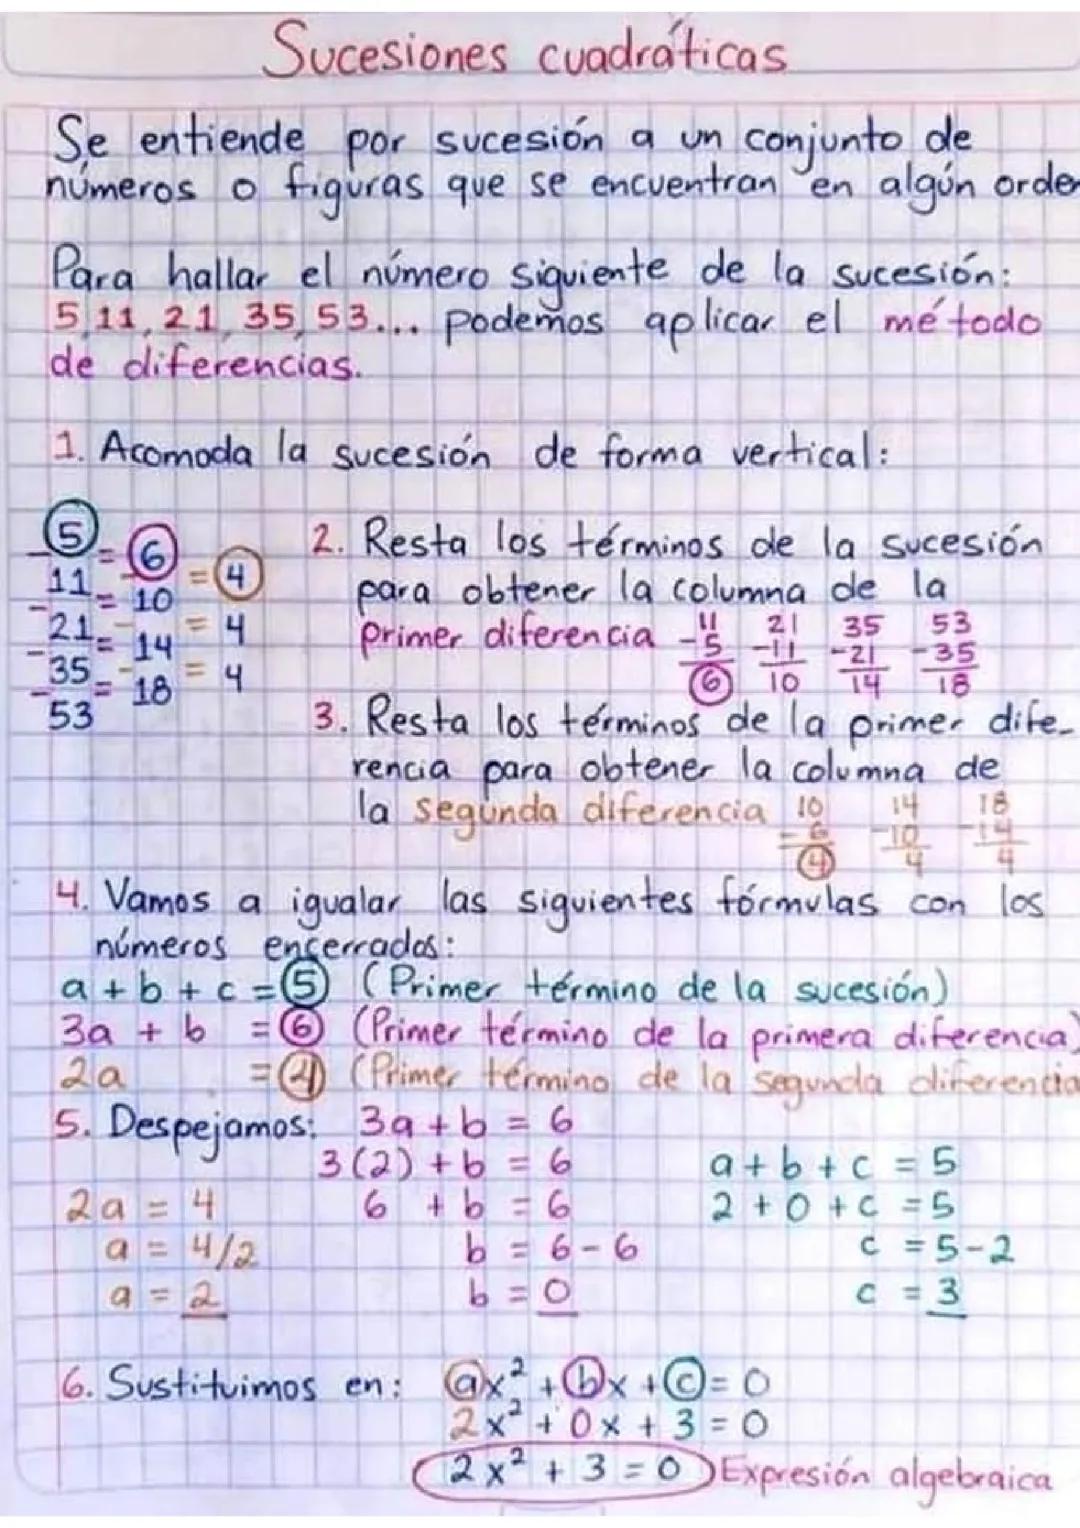 Sucesiones cuadráticas
Se entiende por sucesión a un conjunto de
números o figuras que se encuentran en algún orden
Para hallar el número siguiente de la sucesión:
5, 11, 21, 35, 53... podemos aplicar el método
de diferencias.
1. Acomoda la sucesión de forma vertical:
5
- = 6
11 - = 4
- = 10
21 - = 4
- = 14
35 - = 4
- = 18
53
2. Resta los términos de la sucesión
para obtener la columna de la
primer diferencia
11 21 35 53
-5 -11 -21 -35
6 10 14 18
3. Resta los términos de la primer dife-
rencia para obtener la columna de
la segunda diferencia
10 14 18
-6 -10 -14
4 4 4
4. Vamos a igualar las siguientes fórmulas con los
números encerrados:
a + b + c = 5 (Primer término de la sucesión)
3a + b = 6 (Primer término de la primera diferencia)
2a = 4 (Primer término de la segunda diferencia
5. Despejamos:
2a = 4
a = 4/2
a = 2
3a + b = 6
3(2) + b = 6
6 + b = 6
b = 6 - 6
b = 0
a + b + c = 5
2 + 0 + c = 5
c = 5 - 2
c = 3
6. Sustituimos en: ax² + bx + c = 0
2x² + 0x + 3 = 0
2x² + 3 = 0 Expresión algebraica